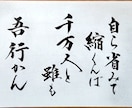 自ら省みて
縮くんば
千万人と
雖も
吾行かん